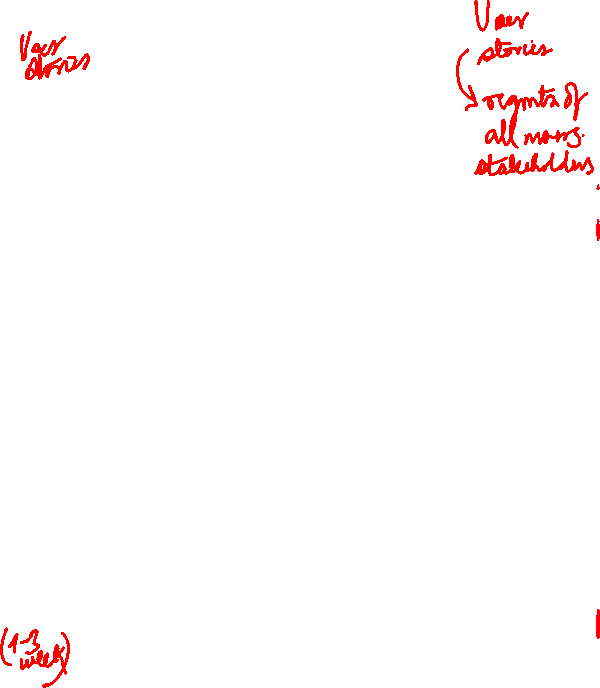 User
stories
User
stories
rqmts of
all
stakeholders
(1-3
week)